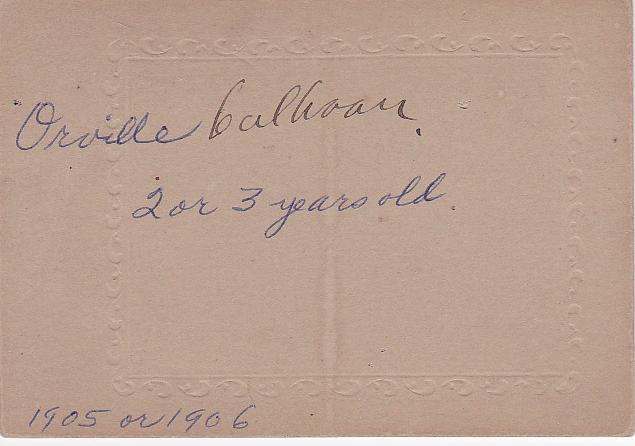 Orville Calhoun.
2 or 3 years old.
1905 or 1906